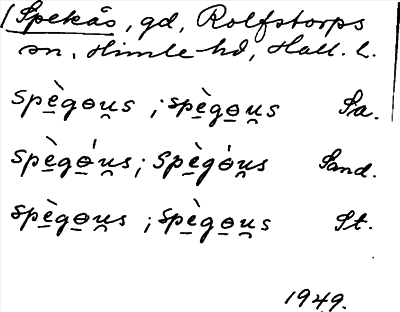 Spekås, gd, Rolfstorps
sn, Himle hd, Hall. l.
spὲgɵu̯s ; spὲgɵu̯s Sa.
spὲgɵ́u̯s ; spὲgɵ́u̯s Sand.
spὲgɵu̯s ; spὲgɵu̯s St.
1949.